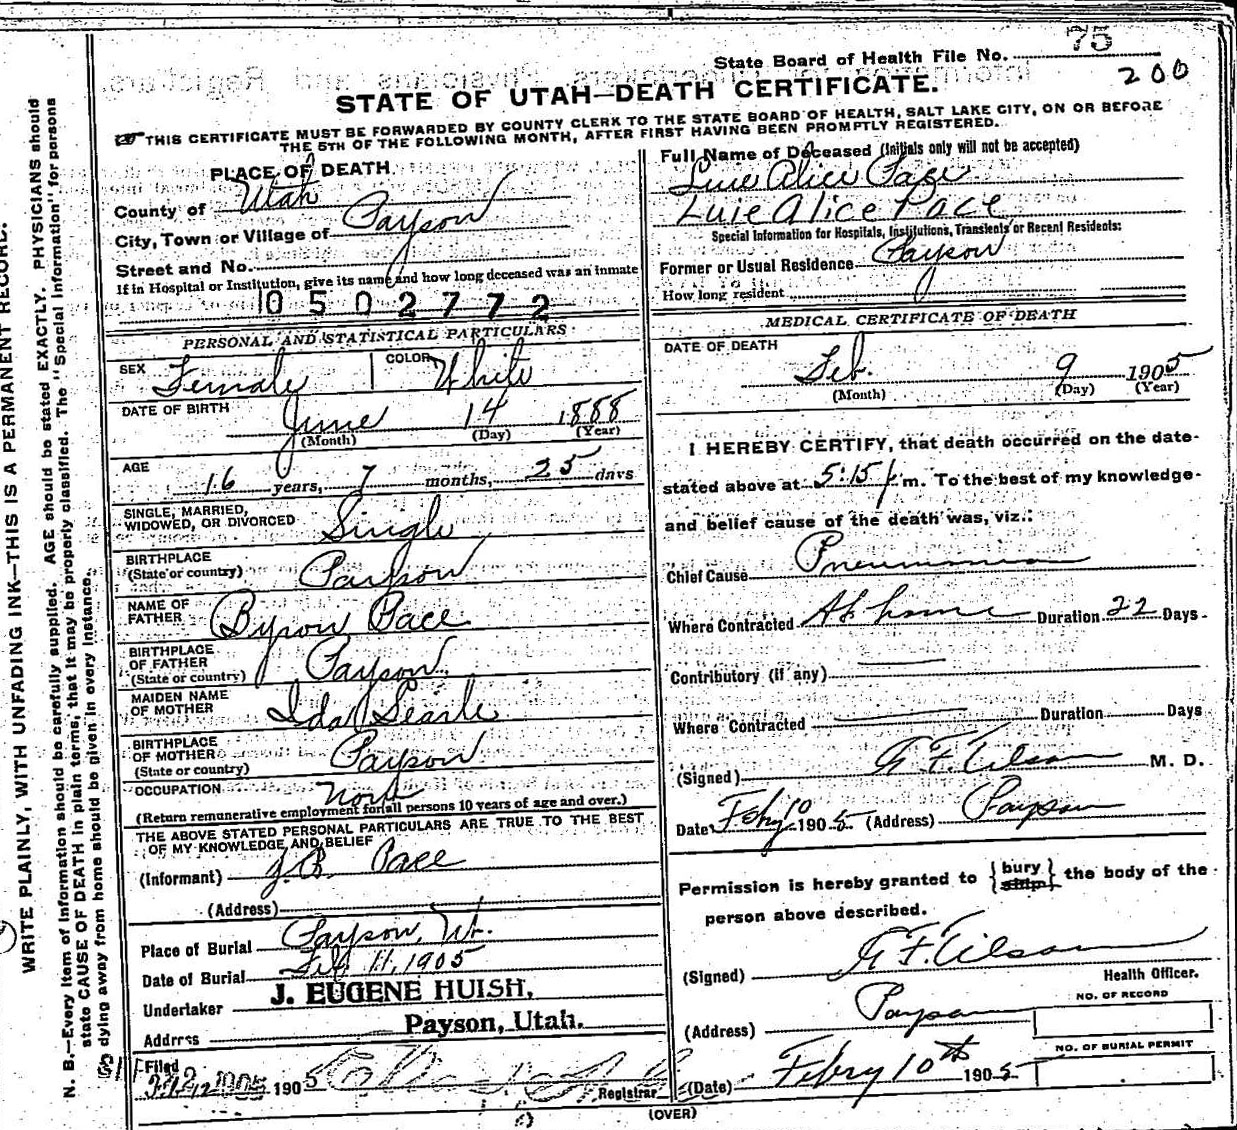 State Board of Health File No. 75
200
STATE OF UTAH—DEATH CERTIFICATE.
THIS CERTIFICATE MUST BE FORWARDED BY COUNTY CLERK TO THE STATE BOARD OF HEALTH, SALT LAKE CITY, ON OR BEFORE
THE 5TH OF THE FOLLOWING MONTH, AFTER FIRST HAVING BEEN PROMPTLY REGISTERED.
PLACE OF DEATH
County of Utah
City, Town or Village of Payson
Street and No.
If in Hospital or Institution, give its name and how long deceased was an inmate
0502772
PERSONAL AND STATISTICAL PARTICULARS
SEX Female COLOR White
DATE OF BIRTH June 14 1888
(Month) (Day) (Year)
AGE
16 years, 7 months, 25 days
SINGLE, MARRIED,
WIDOWED, OR DIVORCED Single
BIRTHPLACE
(State or country) Payson
NAME OF
FATHER Byron Pace
BIRTHPLACE
OF FATHER
(State or country) Payson
MAIDEN NAME
OF MOTHER Ida Searle
BIRTHPLACE
OF MOTHER
(State or country) Payson
OCCUPATION None
(Return remunerative employment for all persons 10 years of age and over.)
THE ABOVE STATED PERSONAL PARTICULARS ARE TRUE TO THE BEST
OF MY KNOWLEDGE AND BELIEF
(Informant) J. B. Pace
(Address)
Place of Burial Payson, Ut.
Date of Burial Feb. 11, 1905
Undertaker J. EUGENE HUISH,
Address Payson, Utah.
Filed
1905 Registrar
Full Name of Deceased (Initials only will not be accepted)
Luie Alice Pace
Luie Alice Pace
Special Information for Hospitals, Institutions, Transients or Recent Residents:
Former or Usual Residence Payson
How long resident
MEDICAL CERTIFICATE OF DEATH
DATE OF DEATH
Feb. 9 1905
(Month) (Day) (Year)
I HEREBY CERTIFY, that death occurred on the date
stated above at 5:15 p m. To the best of my knowledge
and belief cause of the death was, viz.:
Chief Cause Pneumonia
Where Contracted At home Duration 22 Days
Contributory (if any)
Where Contracted Duration Days
(Signed) M. D.
Date Feby 10 1905 (Address) Payson
Permission is hereby granted to {bury ship} the body of the
person above described.
(Signed)
Health Officer.
(Address) Payson
NO. OF RECORD
NO. OF BURIAL PERMIT
(Date) Febry 10th 1905
(OVER)
WRITE PLAINLY, WITH UNFADING INK—THIS IS A PERMANENT RECORD.
N. B.—Every item of information should be carefully supplied. AGE should be stated EXACTLY. PHYSICIANS should
state CAUSE OF DEATH in plain terms, that it may be properly classified. The "Special Information" for persons
dying away from home should be given in every instance.